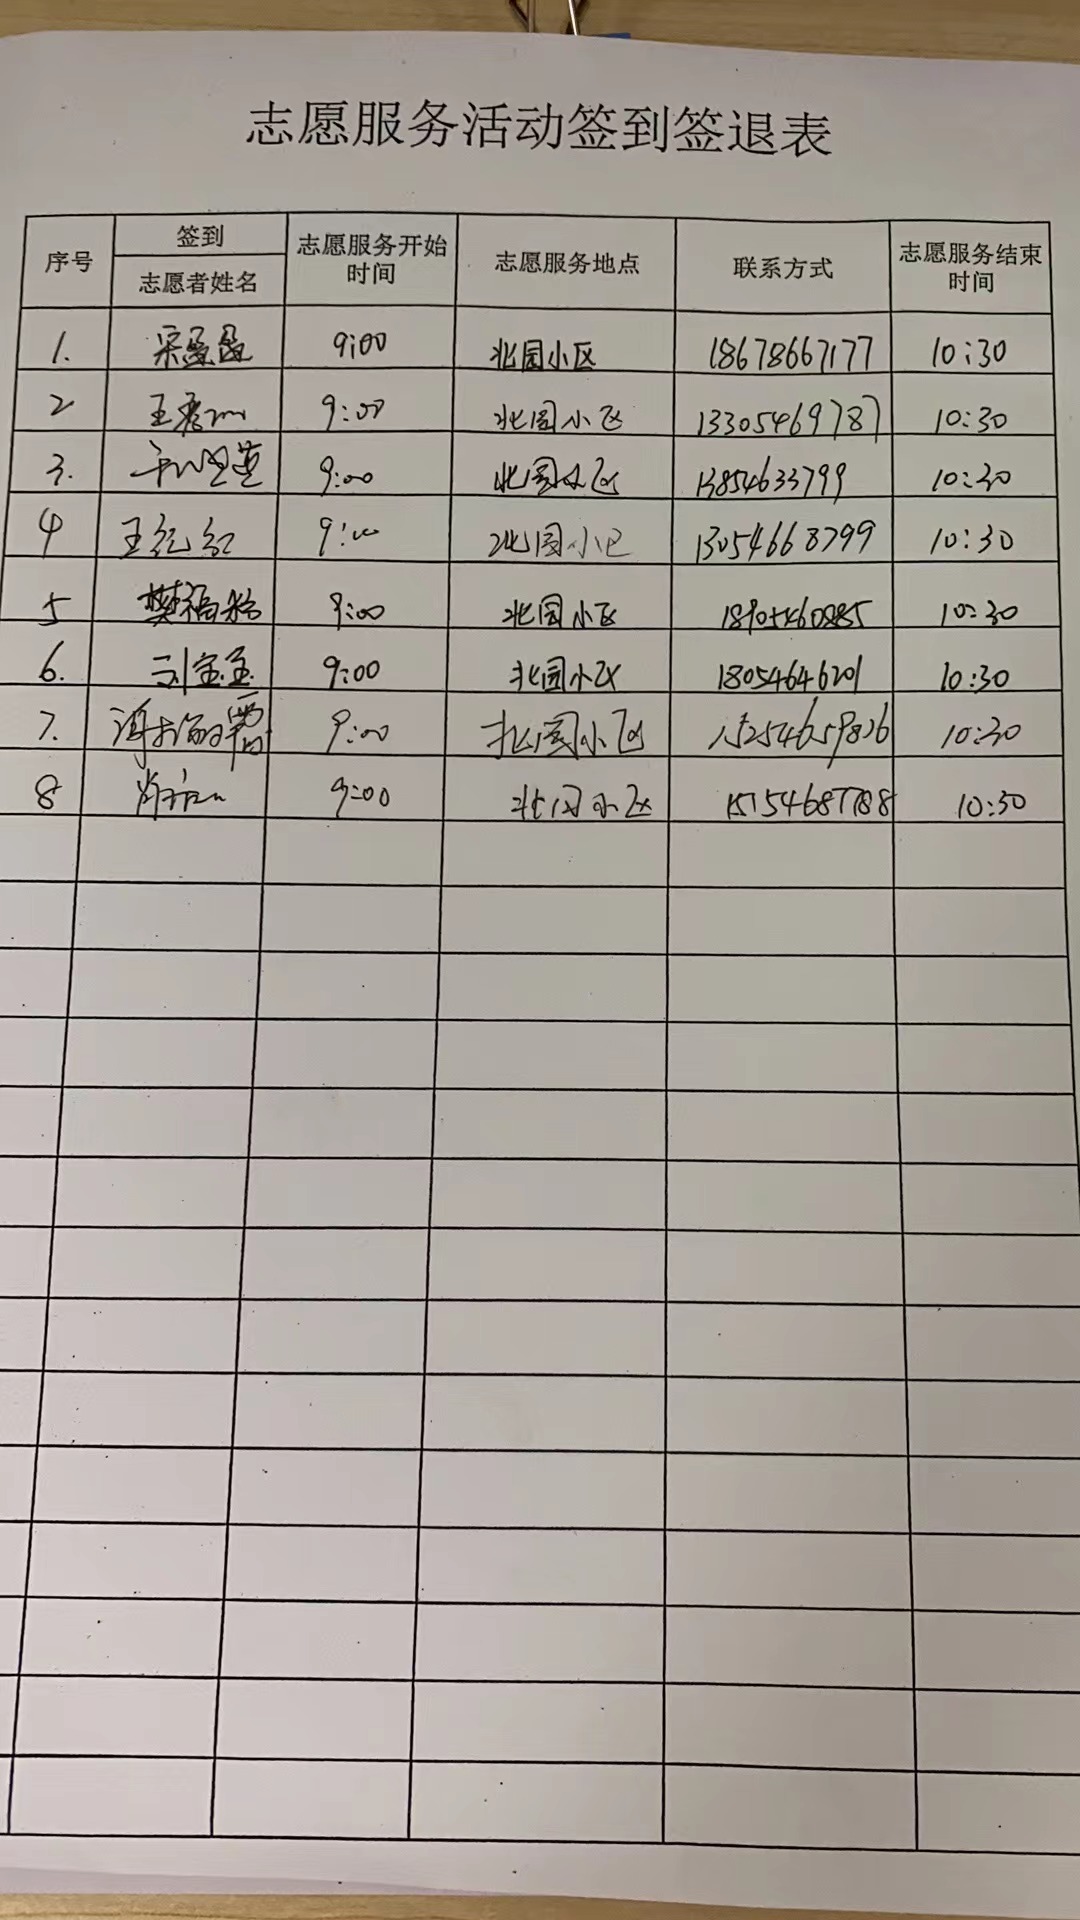 志愿服务活动签到签退表
序号 签到 志愿者姓名 志愿服务开始时间 志愿服务地点 联系方式 志愿服务结束时间
1. 宋盈盈 9:00 北园小区 18678667177 10:30
2 9:00 北园小区 13305469787 10:30
3. 9:00 北园小区 13854633799 10:30
4 王红红 9:00 北园小区 13054668799 10:30
5 9:00 北园小区 18905460885 10:30
6. 刘宝玉 9:00 北园小区 18054646201 10:30
7. 9:00 北园小区 15254659826 10:30
8 9:00 北园小区 15154687788 10:30